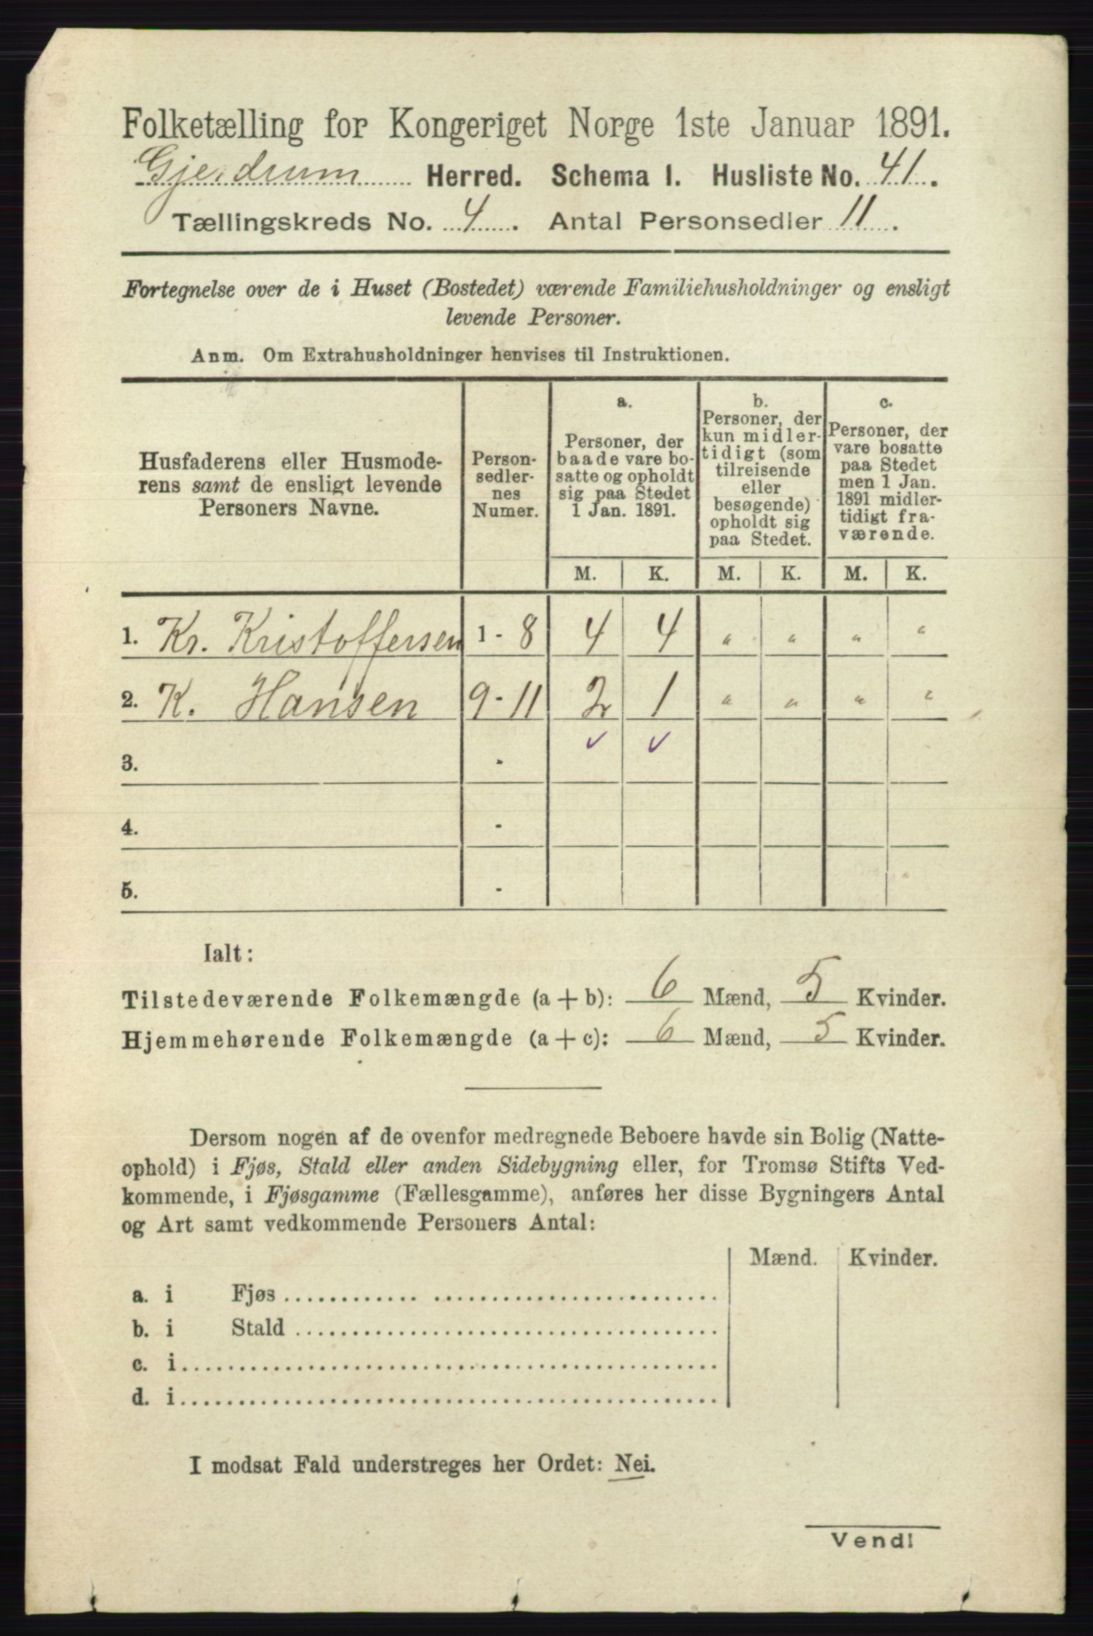 Folketælling for Kongeriget Norge 1ste Januar 1891.
Gjerdrum Herred. Schema 1. Husliste No. 41.
Tællingskreds No. 4. Antal Personsedler 11.
Fortegnelse over de i Huset (Bostedet) værende Familiehusholdninger og ensligt
levende Personer.
Anm. Om Extrahusholdninger henvises til Instruktionen.
Husfaderens eller Husmode-
rens samt de ensligt levende
Personers Navne.
Person-
sedler-
nes
Numer.
a.
Personer, der
baade vare bo-
satte og opholdt
sig paa Stedet
1 Jan. 1891.
b.
Personer, der
kun midler-
tidigt (som
tilreisende
eller
besøgende)
opholdt sig
paa Stedet.
c.
Personer, der
vare bosatte
paa Stedet
men 1 Jan.
1891 midler-
tidigt fra-
værende.
M. K. M. K. M. K.
1. Kr. Kristoffersen 1 - 8 4 4 " " " "
2. K. Hansen 9 - 11 2 1 " " " "
✓ ✓
3. -
4. -
5. -
Ialt:
Tilstedeværende Folkemængde (a + b): 6 Mænd, 5 Kvinder.
Hjemmehørende Folkemængde (a + c): 6 Mænd, 5 Kvinder.
Dersom nogen af de ovenfor medregnede Beboere havde sin Bolig (Natte-
ophold) i Fjøs, Stald eller anden Sidebygning eller, for Tromsø Stifts Ved-
kommende, i Fjøsgamme (Fællesgamme), anføres her disse Bygningers Antal
og Art samt vedkommende Personers Antal:
Mænd. Kvinder.
a. i Fjøs
b. i Stald
c. i
d. i
I modsat Fald understreges her Ordet: Nei.
Vend!